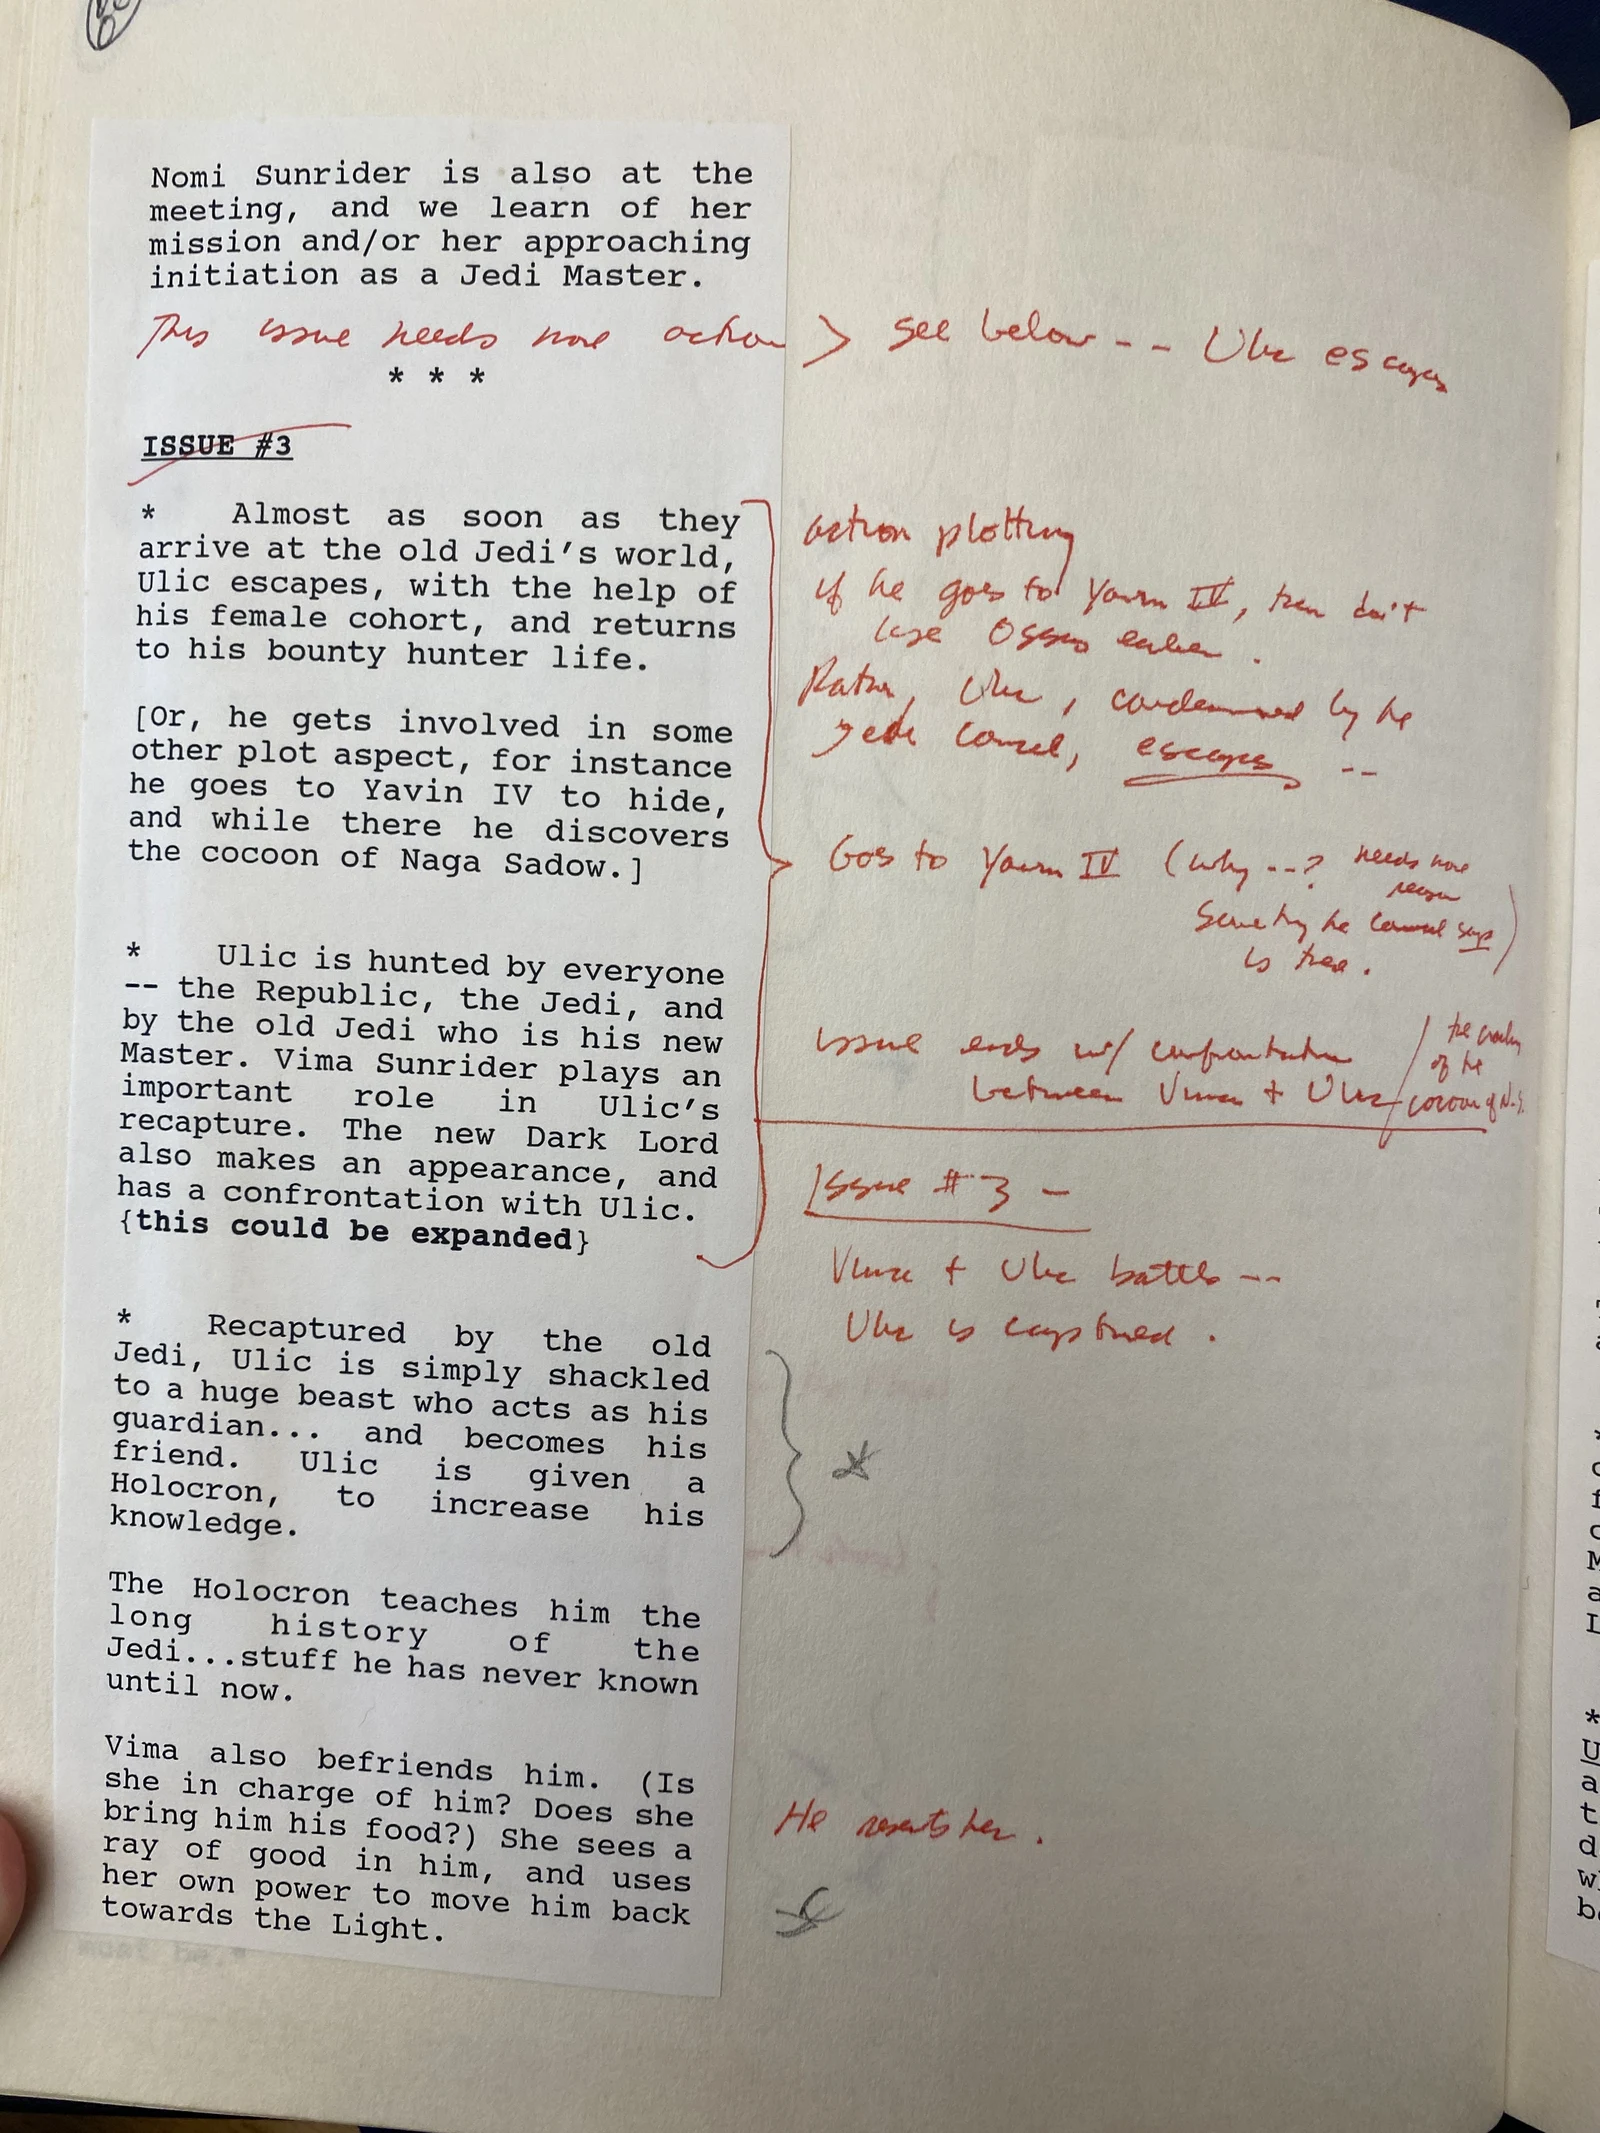 Nomi Sunrider is also at the
meeting, and we learn of her
mission and/or her approaching
initiation as a Jedi Master.
This issue needs more action > see below -- Ulic escapes
* * *
ISSUE #3
* Almost as soon as they
arrive at the old Jedi's world,
Ulic escapes, with the help of
his female cohort, and returns
to his bounty hunter life.
[Or, he gets involved in some
other plot aspect, for instance
he goes to Yavin IV to hide,
and while there he discovers
the cocoon of Naga Sadow.]
* Ulic is hunted by everyone
-- the Republic, the Jedi, and
by the old Jedi who is his new
Master. Vima Sunrider plays an
important role in Ulic's
recapture. The new Dark Lord
also makes an appearance, and
has a confrontation with Ulic.
{this could be expanded}
* Recaptured by the old
Jedi, Ulic is simply shackled
to a huge beast who acts as his
guardian... and becomes his
friend. Ulic is given a
Holocron, to increase his
knowledge.
The Holocron teaches him the
long history of the
Jedi...stuff he has never known
until now.
Vima also befriends him. (Is
she in charge of him? Does she
bring him his food?) She sees a
ray of good in him, and uses
her own power to move him back
towards the Light.
action plotting
if he goes to Yavin IV, then don't
use Ossus earlier.
Rather, Ulic, condemned by the
Jedi Council, escapes --
Goes to Yavin IV (why --? needs more
reason
Something the Council says
is there.)
issue ends w/ confrontation
between Vima + Ulic /
the
of the
cocoon of N.S.
Issue #3 -
Vima + Ulic battle --
Ulic is captured.
*
He resents her.
must be."